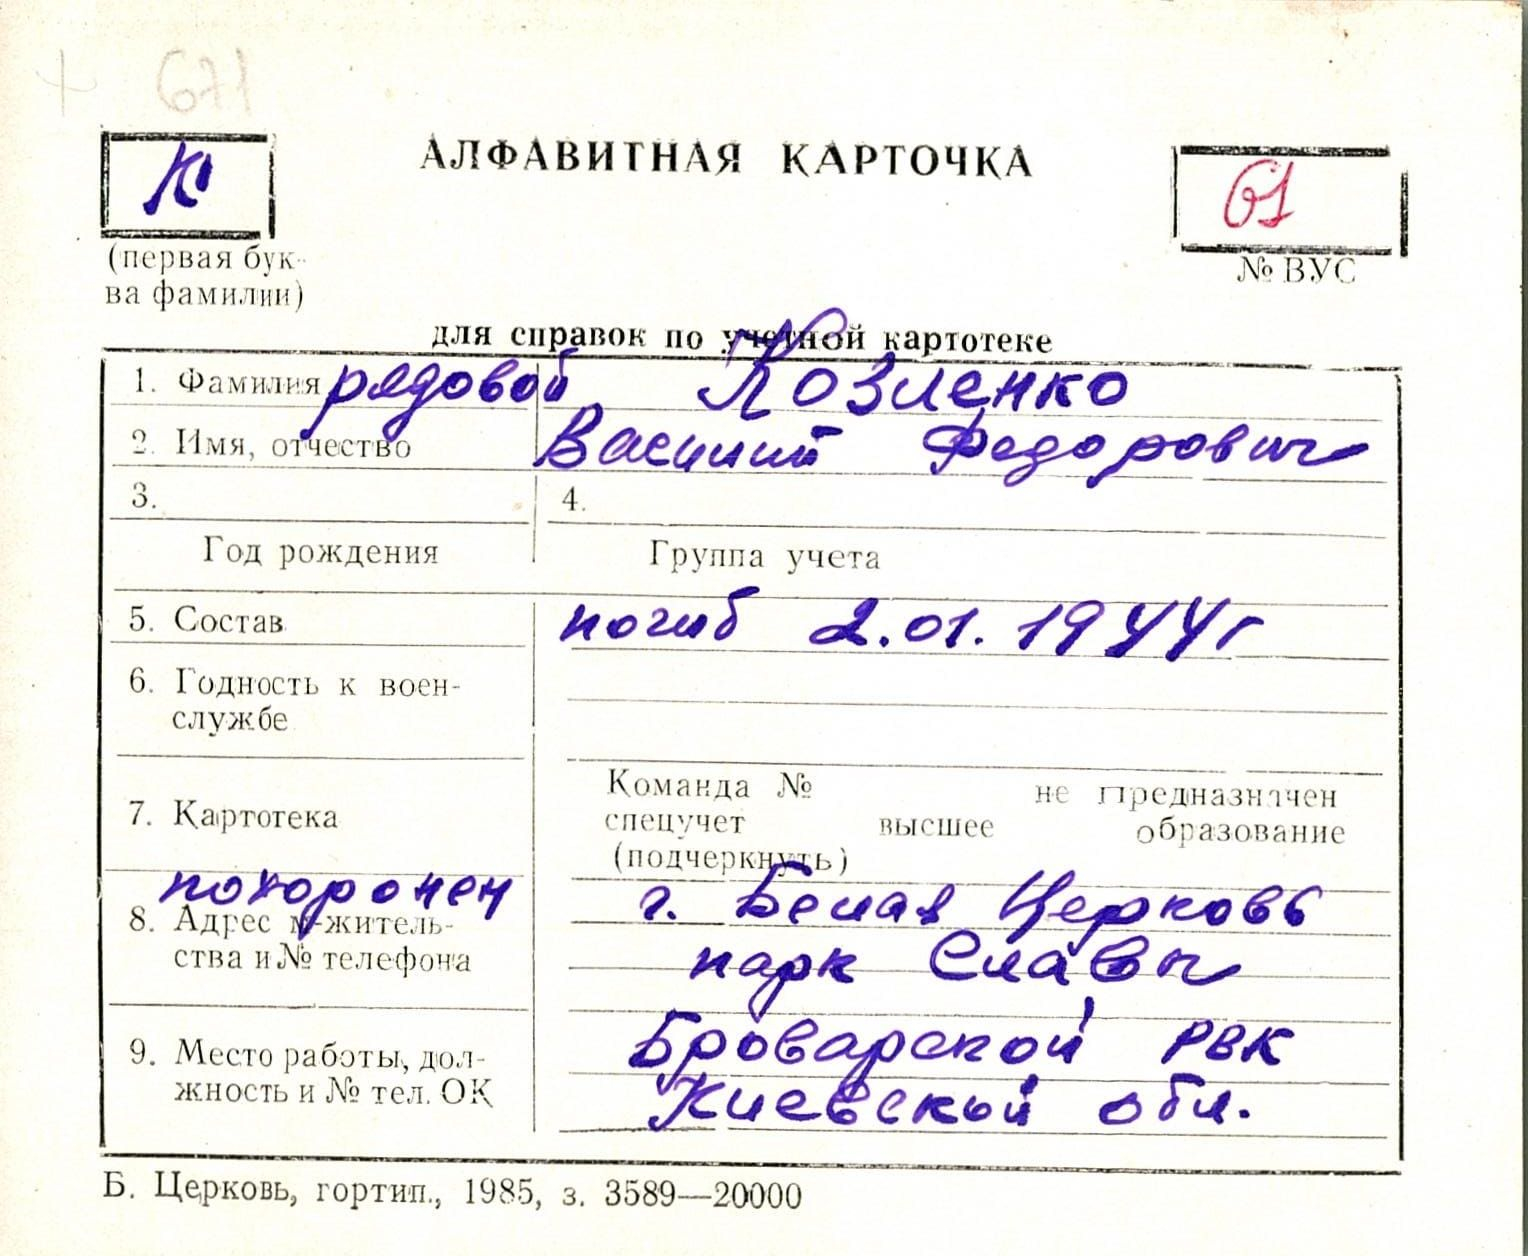 + 671
АЛФАВИТНАЯ КАРТОЧКА
К
61
(первая бук-
ва фамилии)
№ ВУС
для справок по учетной картотеке
1. Фамилия рядовой Козленко
2. Имя, отчество Василий Федорович
3. 4.
Год рождения Группа учета
5. Состав погиб 2.01.1944г
6. Годность к воен-
службе
Команда № не предназначен
7. Картотека спецучет высшее образование
(подчеркнуть)
похоронен г. Белая Церковь
8. Адрес м-житель-
ства и № телефона парк Славы
Броварской РВК
9. Место работы, дол-
жность и № тел. ОК Киевской обл.
Б. Церковь, гортип., 1985, з. 3589—20000